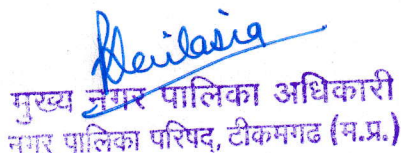 मुख्य नगर पालिका अधिकारी
नगर पालिका परिषद, टीकमगढ (म.प्र.)